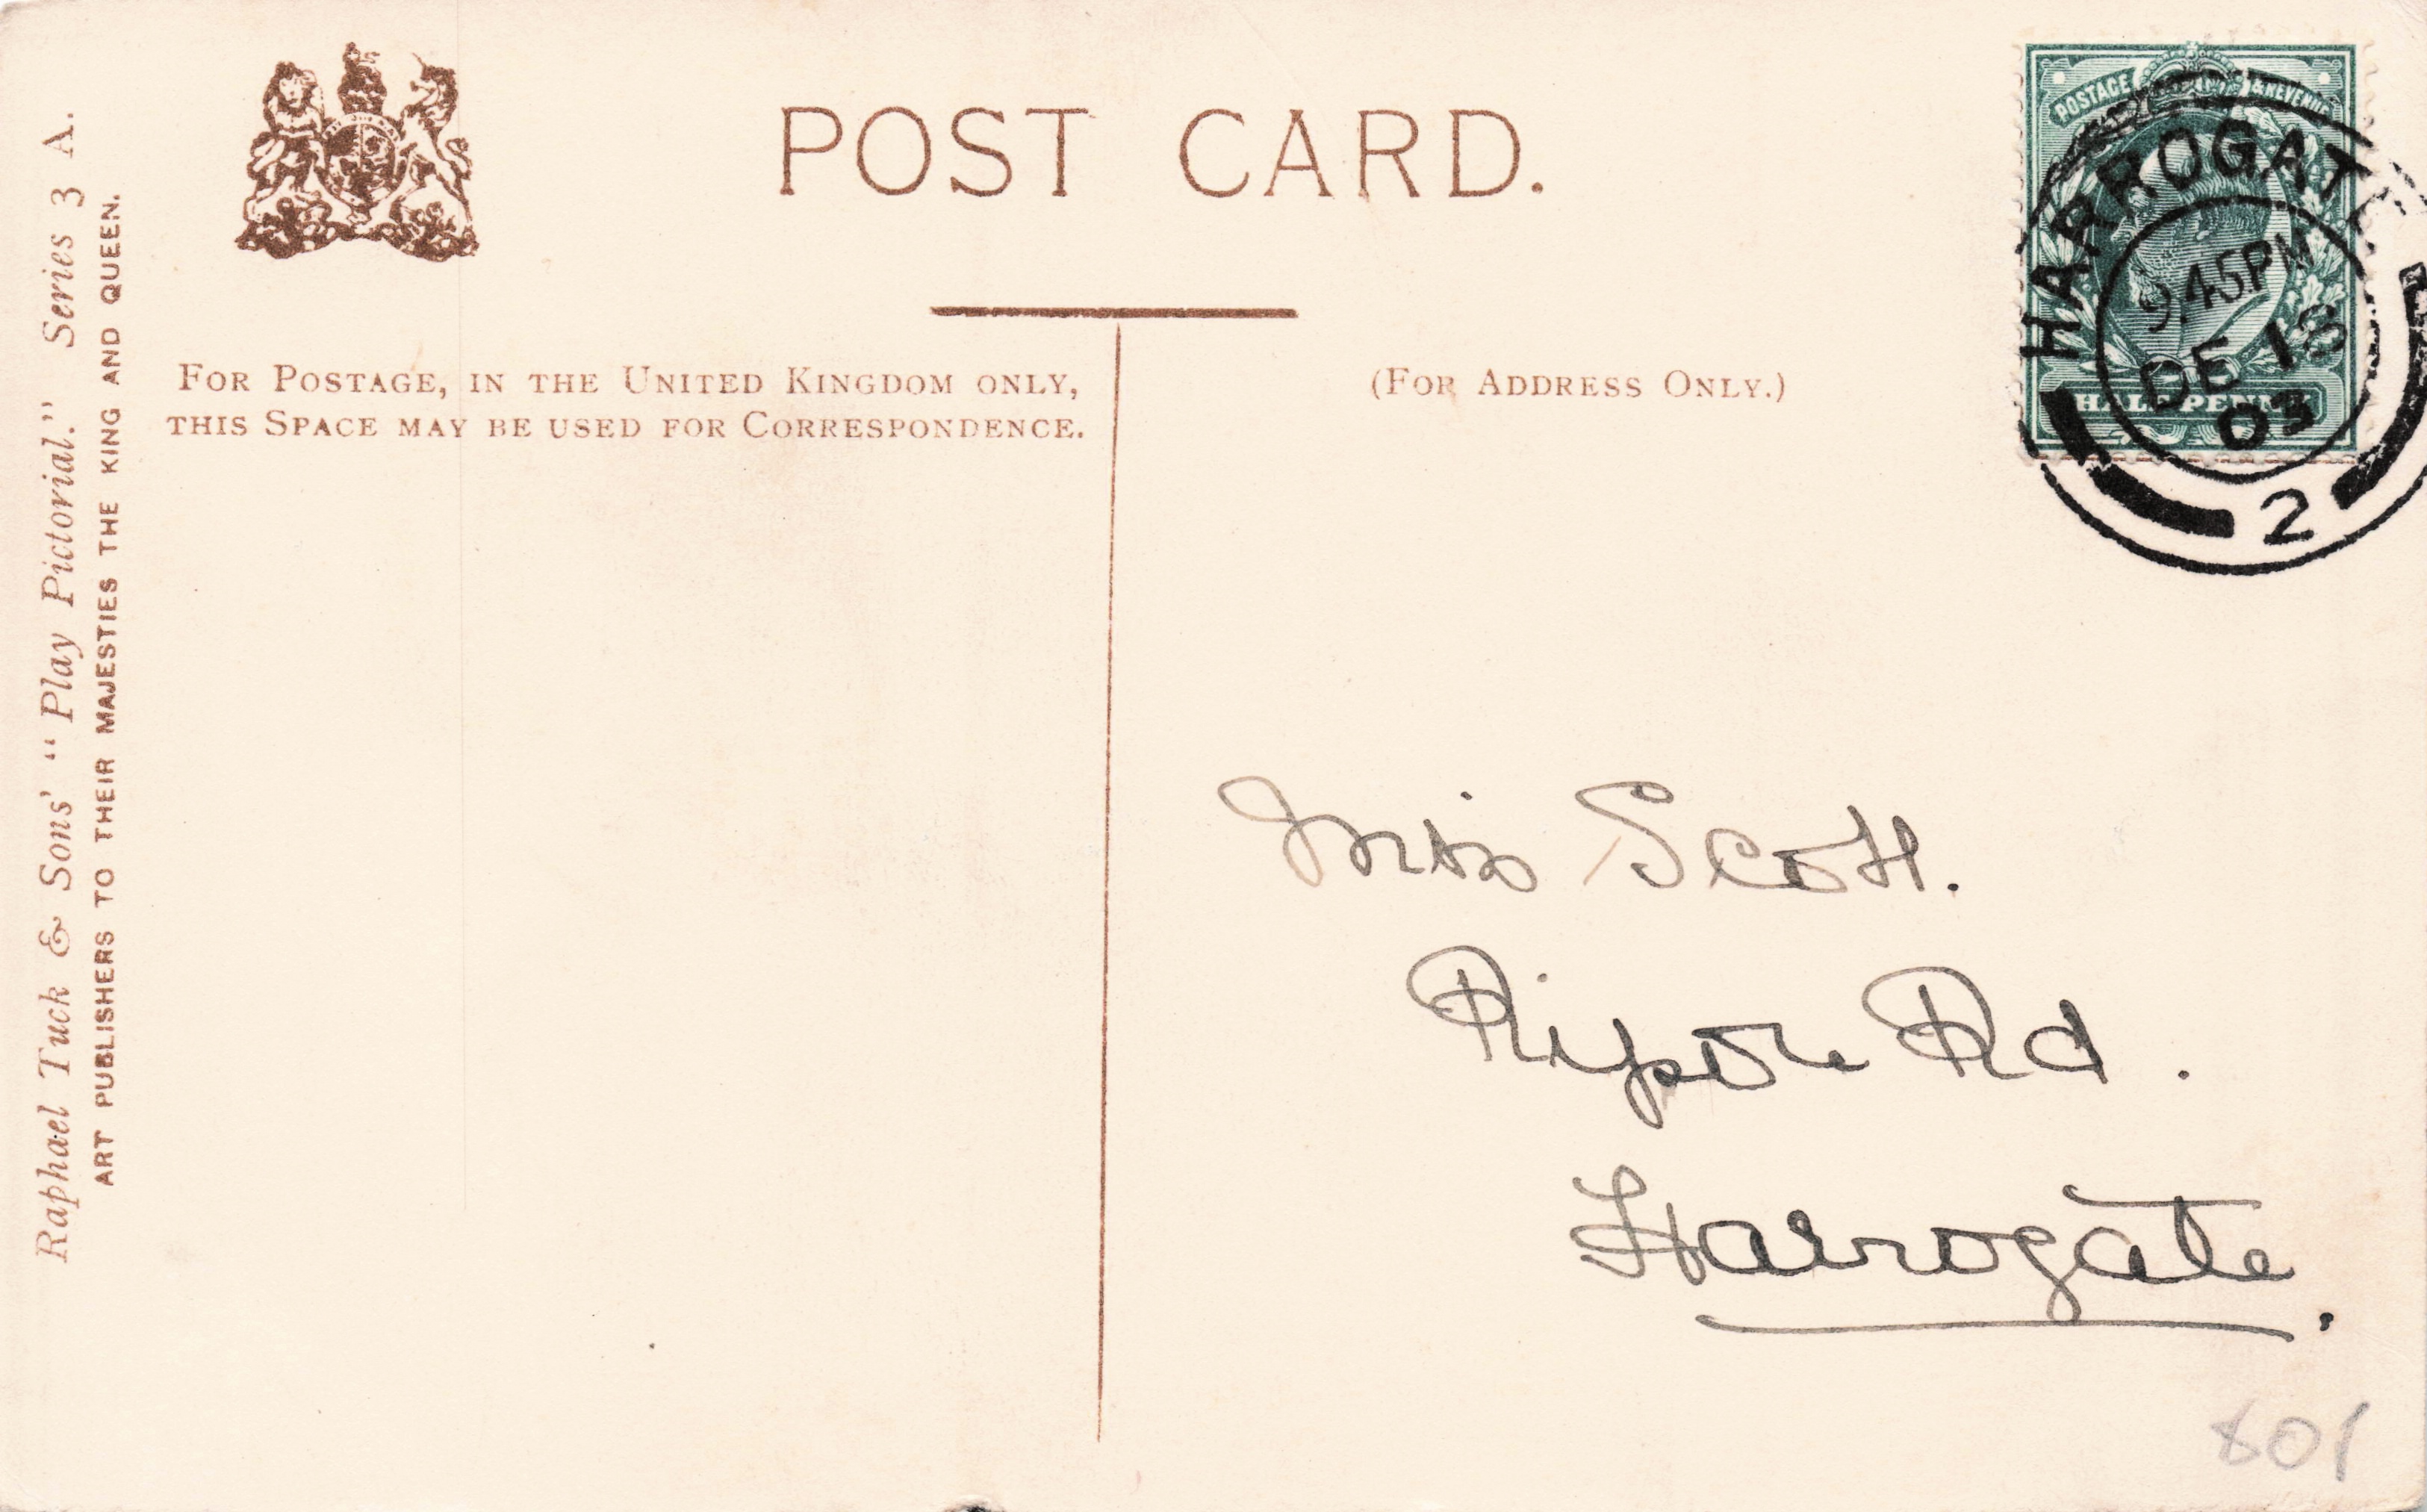 Raphael Tuck & Sons' "Play Pictorial." Series 3 A.
ART PUBLISHERS TO THEIR MAJESTIES THE KING AND QUEEN.
POST CARD.
FOR POSTAGE, IN THE UNITED KINGDOM ONLY,
THIS SPACE MAY BE USED FOR CORRESPONDENCE.
(FOR ADDRESS ONLY.)
POSTAGE & REVENUE
HALF PENNY
HARROGATE
9.45PM
DE 18
03
2
Miss Scott.
Ripon Rd.
Harrogate.